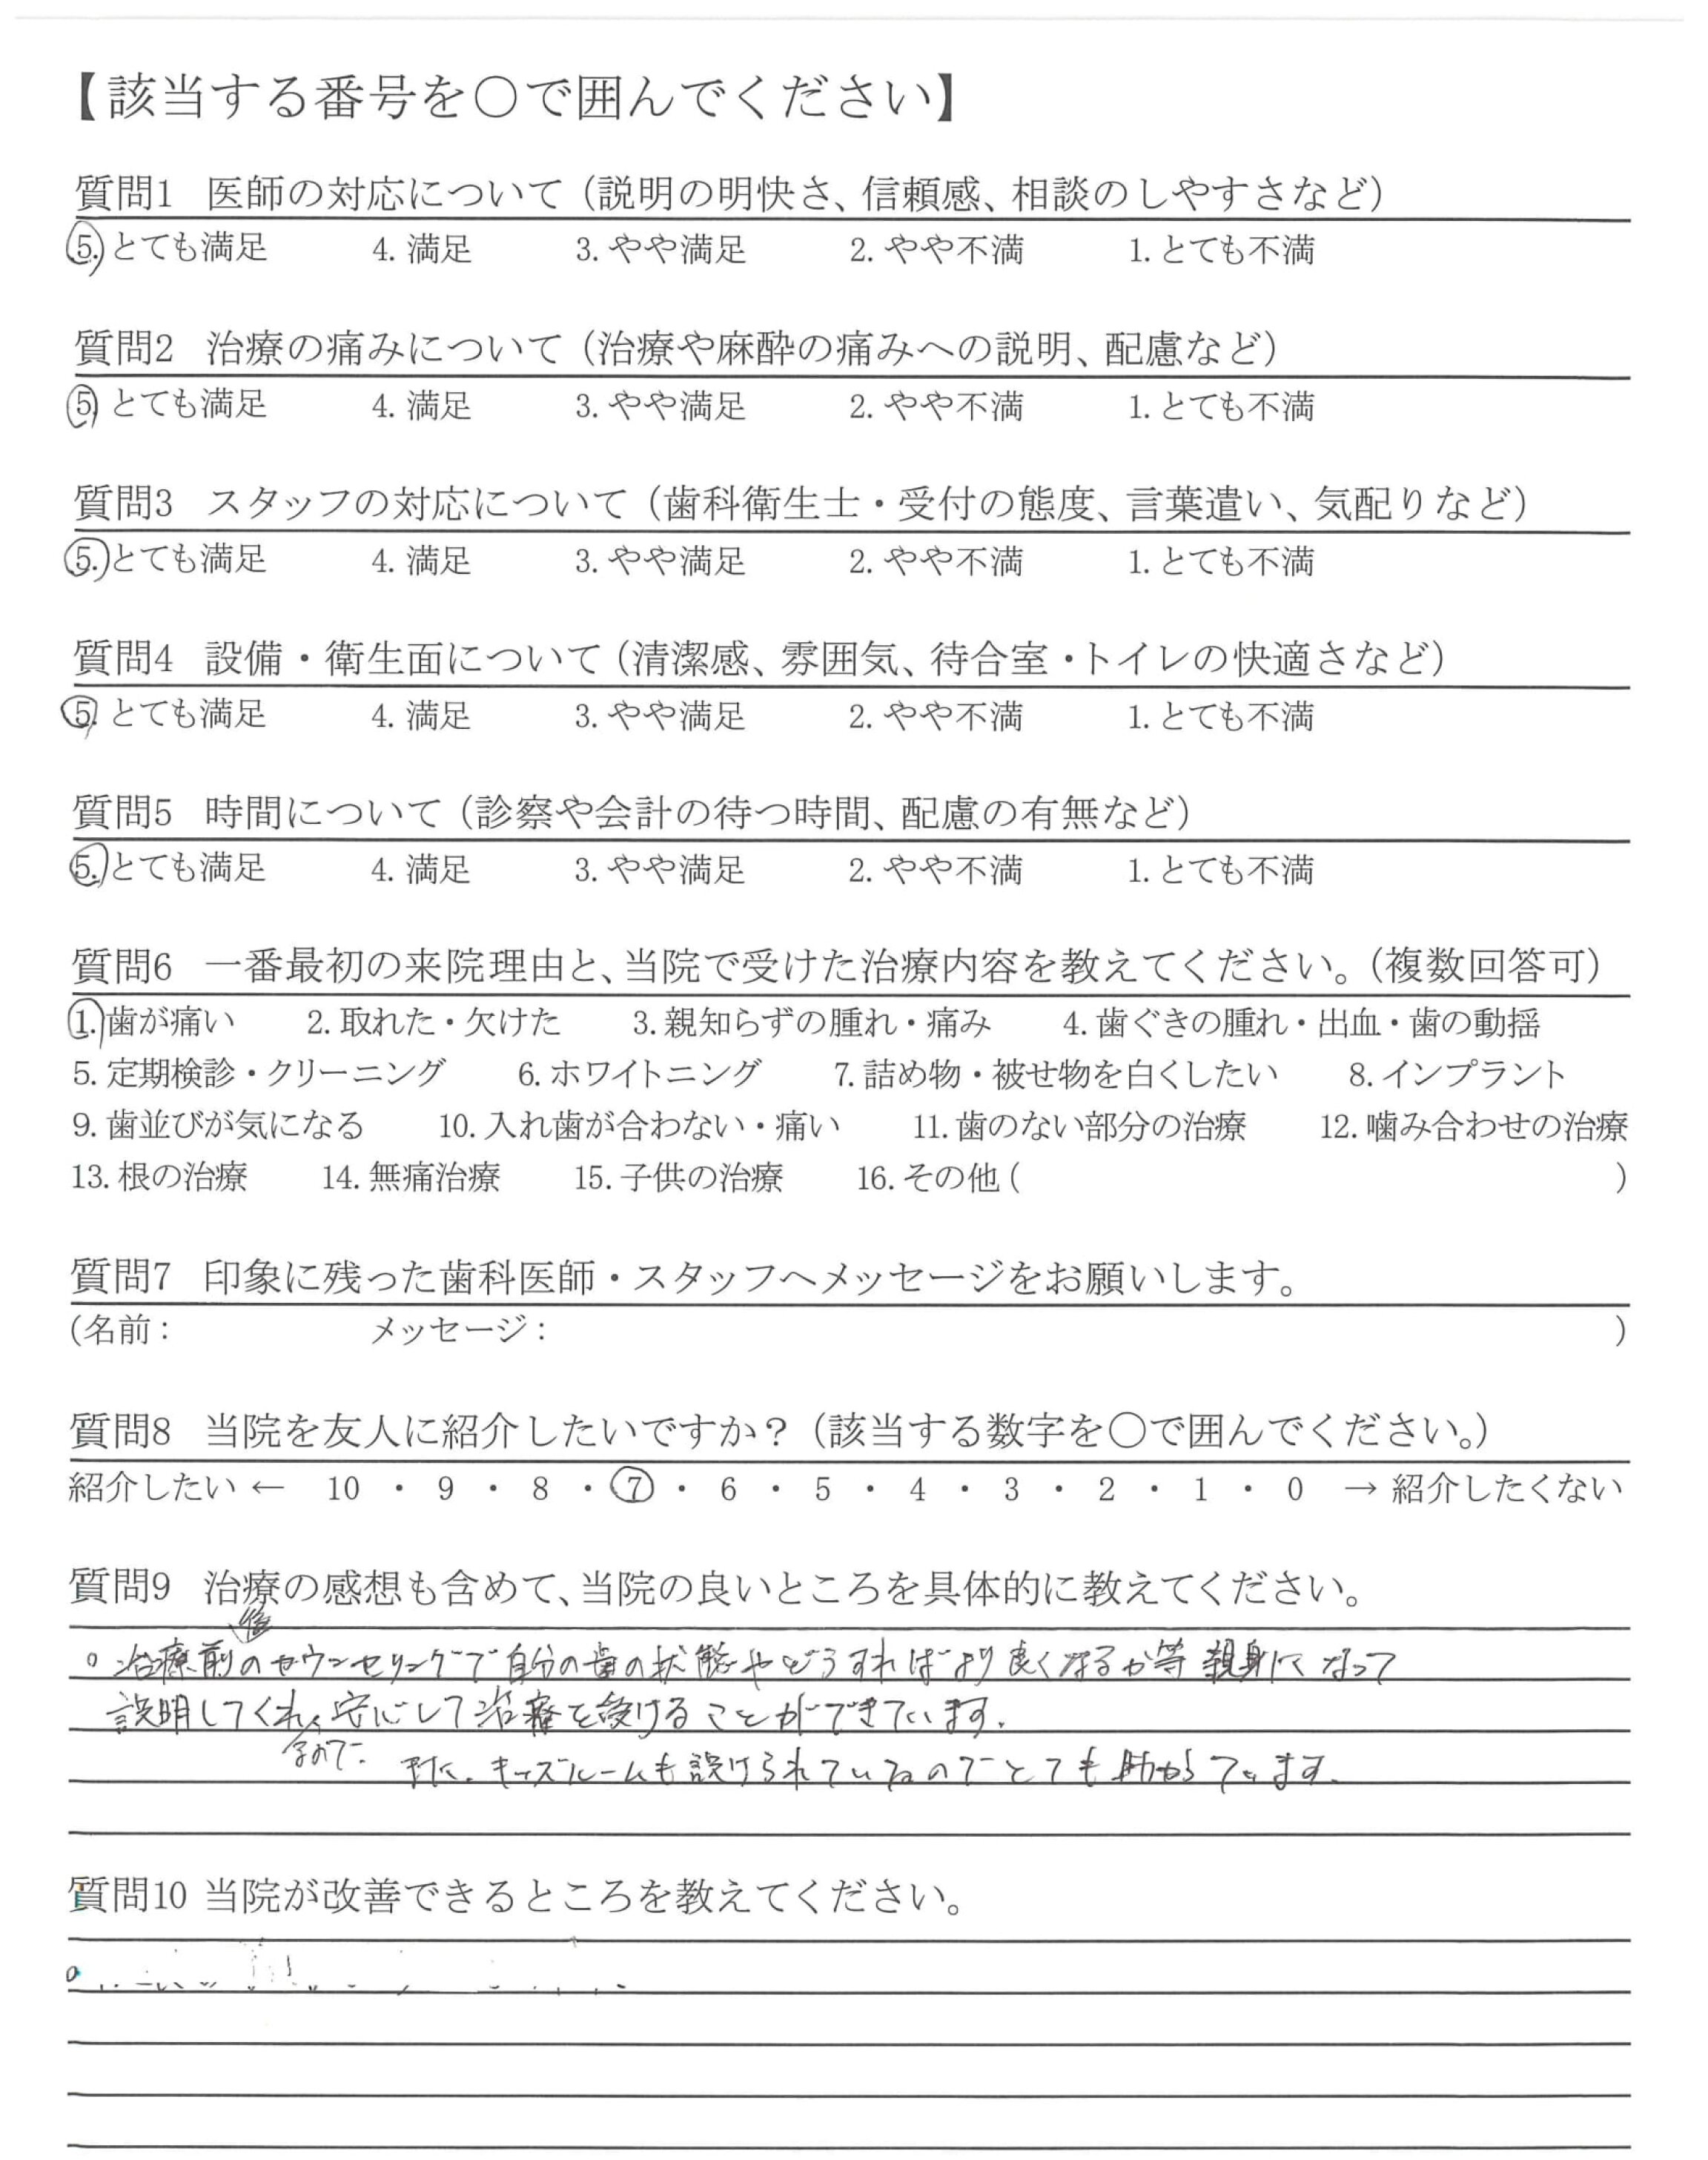 【該当する番号を○で囲んでください】
質問1 医師の対応について（説明の明快さ、信頼感、相談のしやすさなど）
5. とても満足 4. 満足 3. やや満足 2. やや不満 1. とても不満
質問2 治療の痛みについて（治療や麻酔の痛みへの説明、配慮など）
5. とても満足 4. 満足 3. やや満足 2. やや不満 1. とても不満
質問3 スタッフの対応について（歯科衛生士・受付の態度、言葉遣い、気配りなど）
5. とても満足 4. 満足 3. やや満足 2. やや不満 1. とても不満
質問4 設備・衛生面について（清潔感、雰囲気、待合室・トイレの快適さなど）
5. とても満足 4. 満足 3. やや満足 2. やや不満 1. とても不満
質問5 時間について（診察や会計の待つ時間、配慮の有無など）
5. とても満足 4. 満足 3. やや満足 2. やや不満 1. とても不満
質問6 一番最初の来院理由と、当院で受けた治療内容を教えてください。（複数回答可）
1. 歯が痛い 2. 取れた・欠けた 3. 親知らずの腫れ・痛み 4. 歯ぐきの腫れ・出血・歯の動揺
5. 定期検診・クリーニング 6. ホワイトニング 7. 詰め物・被せ物を白くしたい 8. インプラント
9. 歯並びが気になる 10. 入れ歯が合わない・痛い 11. 歯のない部分の治療 12. 噛み合わせの治療
13. 根の治療 14. 無痛治療 15. 子供の治療 16. その他（ ）
質問7 印象に残った歯科医師・スタッフへメッセージをお願いします。
（名前： メッセージ： ）
質問8 当院を友人に紹介したいですか？（該当する数字を○で囲んでください。）
紹介したい ← 10 ・ 9 ・ 8 ・ 7 ・ 6 ・ 5 ・ 4 ・ 3 ・ 2 ・ 1 ・ 0 → 紹介したくない
質問9 治療の感想も含めて、当院の良いところを具体的に教えてください。
。治療前後のカウンセリングで自分の歯の状態やどうすればより良くなるか等 親身になって
説明してくれ、安心して治療を受けることができています。
また、キッズルームも設けられているのでとても助かってます。
質問10 当院が改善できるところを教えてください。